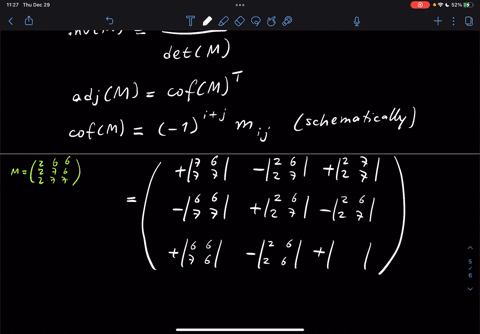 11:27 Thu Dec 29
52%
det(M)
adj(M) = cof(M)^T
cof(M) = (-1)^{i+j} m_{ij} (schematically)
M = (2 6 6
2 7 6
2 7 7)
= ( +|7 6| -|2 6| +|2 7|
|7 7| |2 7| |2 7|
-|6 6| +|2 6| -|2 6|
|7 7| |2 7| |2 7|
+|6 6| -|2 6| +| |
|7 6| |2 6| )
5
/
6